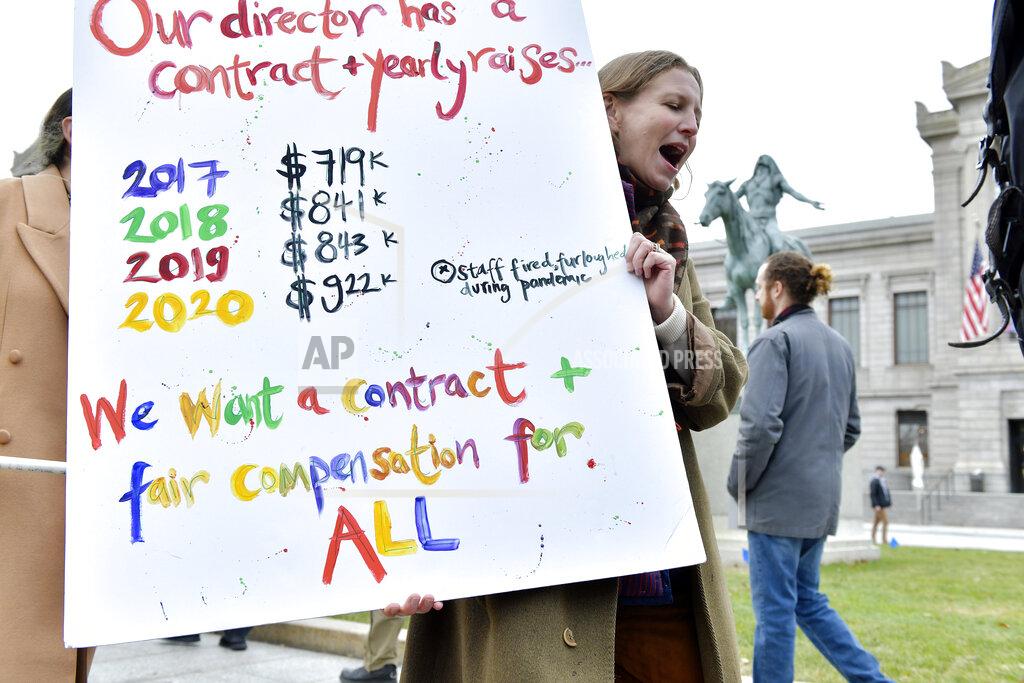 Our director has a
contract + yearly raises...
2017 $719K
2018 $841K
2019 $843K
2020 $922K
ⓧ staff fired, furloughed
during pandemic
AP
ASSOCIATED PRESS
We want a contract +
fair compensation for
ALL